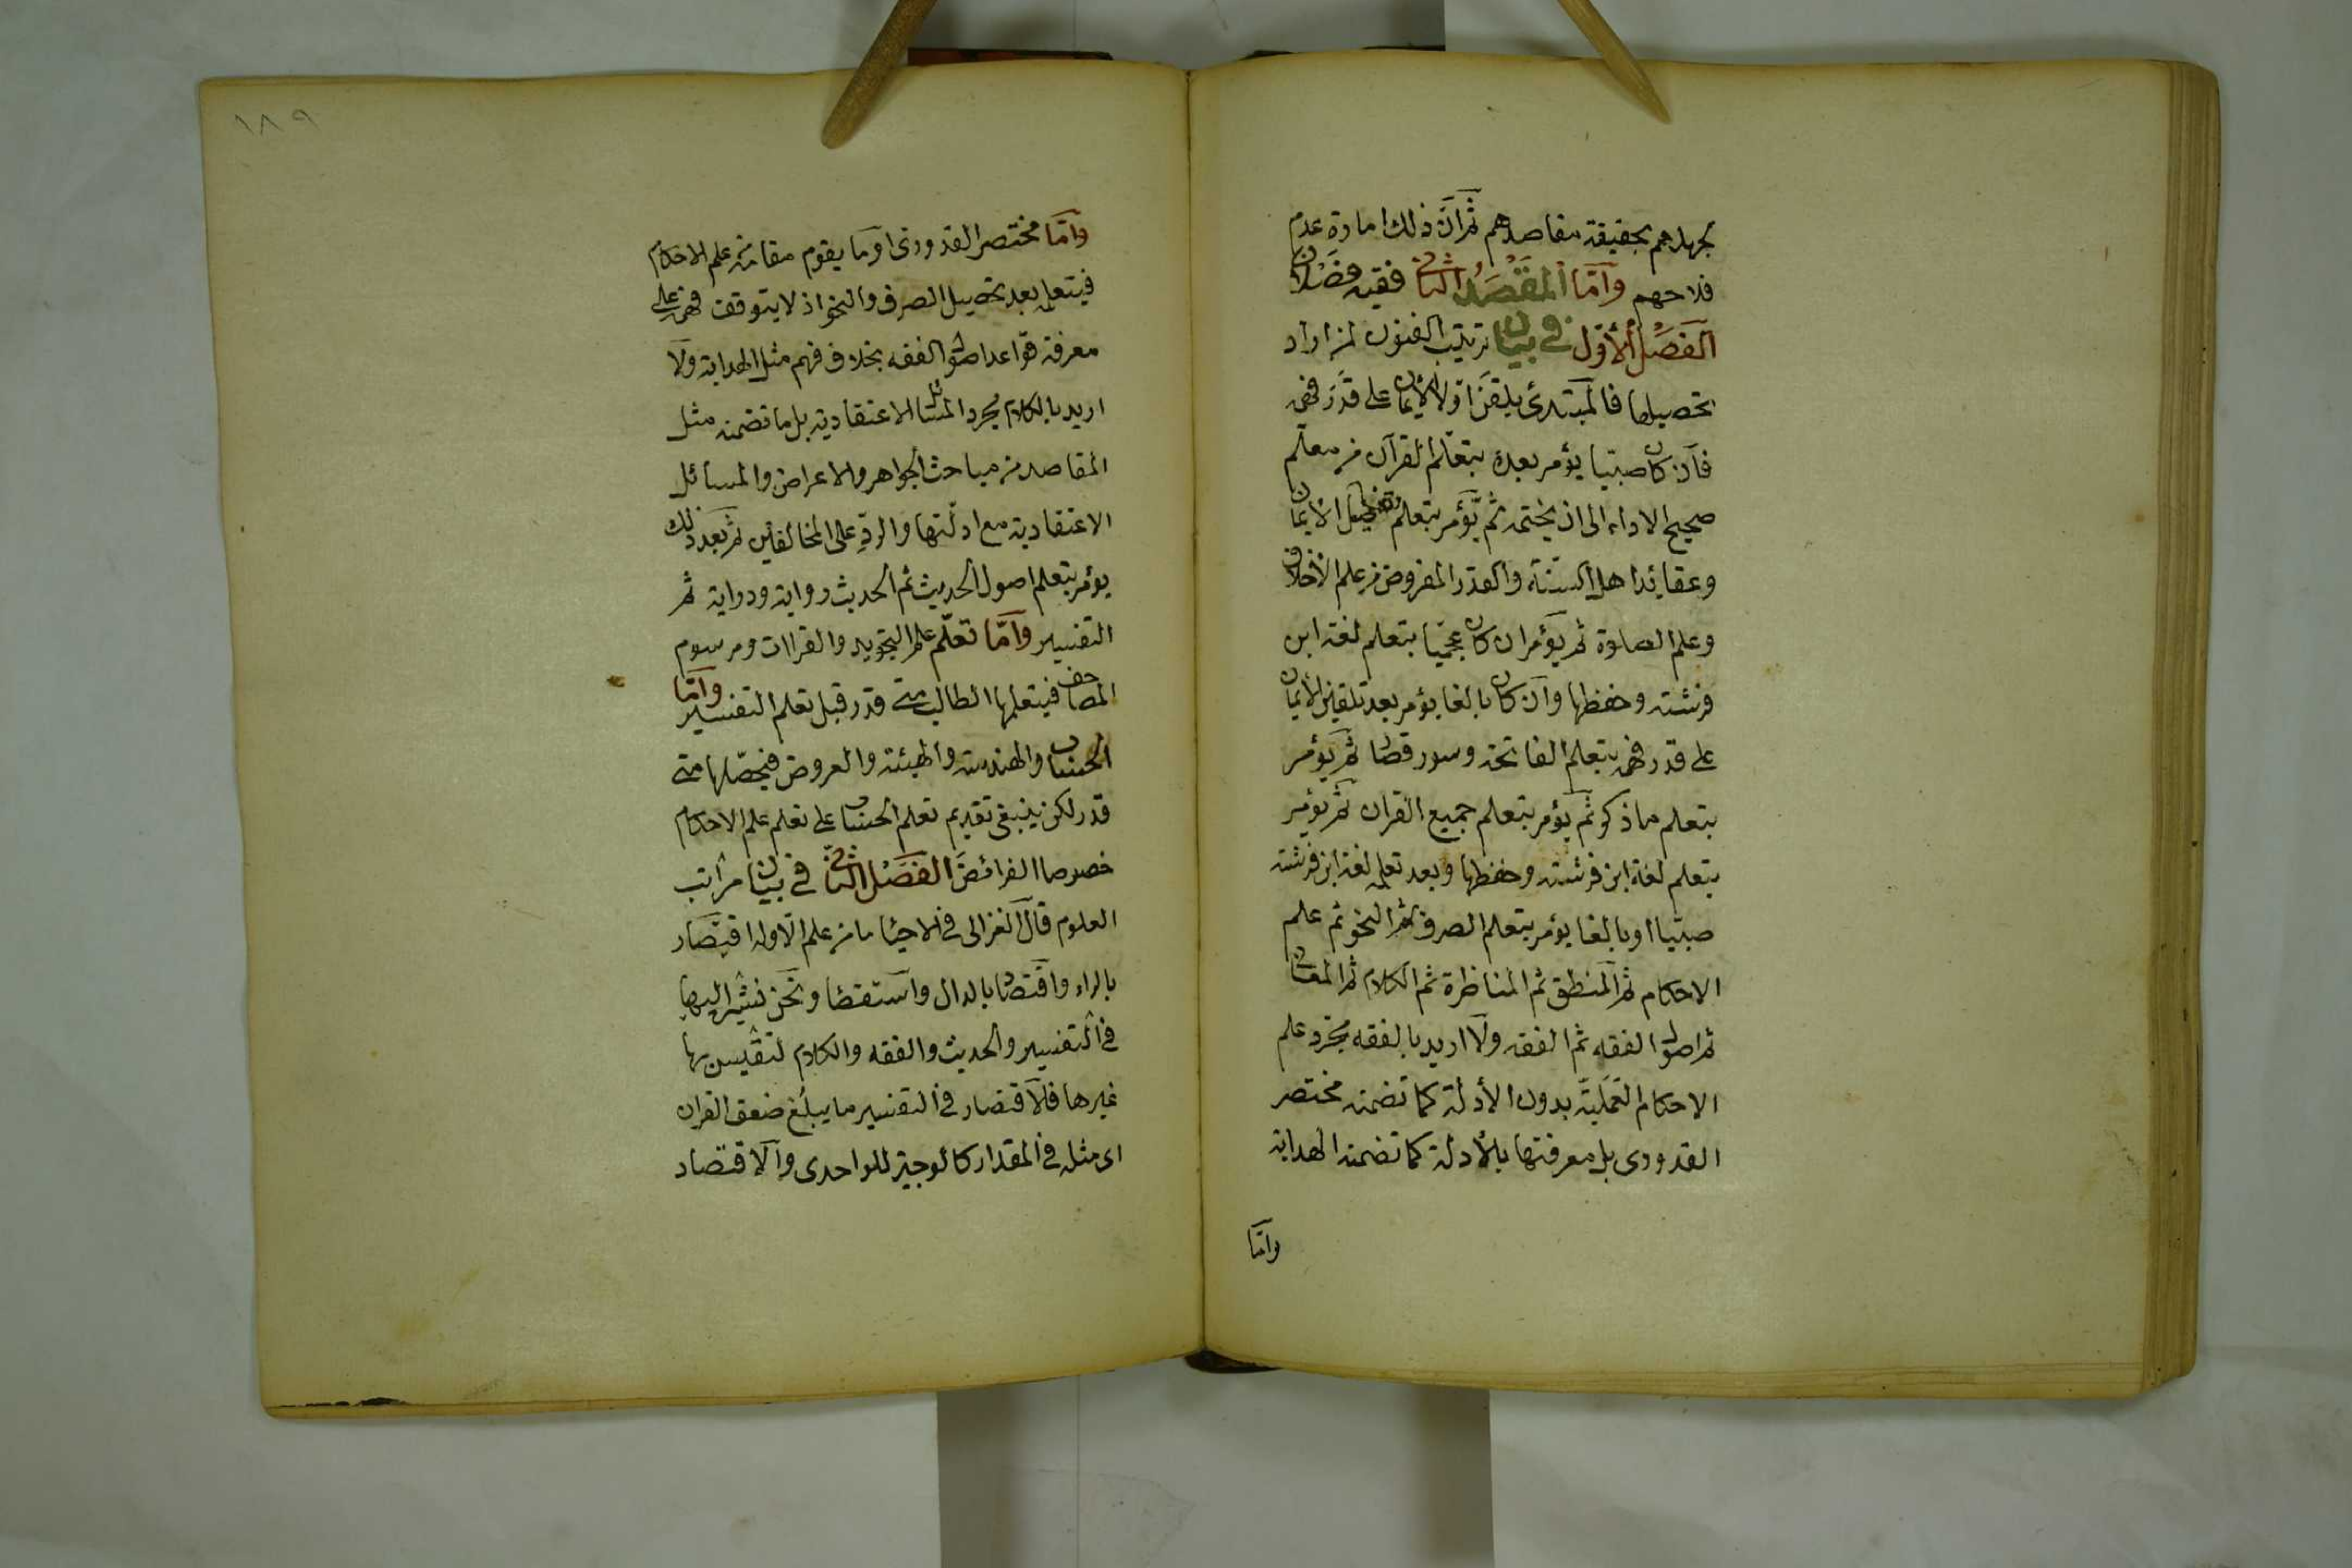 لجهلهم بحقيقة مقاصدهم ثم ان ذلك امارة عدم
فلاحهم وامّا المَقْصَدُ الثانى ففيه فصلان
الفَصْلُ الأوّل في بيان ترتيب الفنون لمن اراد
تحصيلها فالمبتدئ يلقن اولا الأيمان على قَدَر فهمه
فان كان صبيّا يؤمر بعده بتعلّم القرآن من معلّم
صحيح الاداء الى ان يختمه ثم يؤمر بتعلم تفاصيل الأيمان
وعقائد اهل السنّة والقدر المفروض من علم الأخلاق
وعلم الصلوة ثم يؤمر ان كان عجميّا بتعلم لغة ابن
فرشته وحفظها وان كان بالغا يؤمر بعد تلقين الأيمان
على قدر فهمه بتعلم الفاتحة وسور قصار ثم يؤمر
بتعلم ما ذكر ثم يؤمر بتعلم جميع القران ثم يؤمر
بتعلم لغة ابن فرشته وحفظها وبعد تعلمه لغة ابن فرشته
صبيّا او بالغا يؤمر بتعلم الصرف ثم النحو ثم علم
الاحكام ثم المنطق ثم المناظرة ثم الكلام ثم المعانى
ثم اصول الفقه ثم الفقه ولا اريد بالفقه مجرّد علم
الاحكام العَمَليّة بدون الأدلة كما تضمنه مختصر
القدورى بل معرفتها بالأدلة كما تضمنه الهداية
وامّا
١٨٩
وامّا مختصر القدورى او ما يقوم مقامه من علم الاحكام
فيتعلم بعد تحصيل الصرف والنحو اذ لا يتوقف فهمه على
معرفة قواعد اصول الفقه بخلاف فهم مثل الهداية ولا
اريد بالكلام مجرد المسائل الاعتقادية بل ما تضمنه مثل
المقاصد من مباحث الجواهر والاعراض والمسائل
الاعتقادية مع ادلّتها والردّ على المخالفين ثم بعد ذلك
يؤمر بتعلم اصول الحديث ثم الحديث رواية ودراية ثم
التفسير وامّا تعلّم علم التجويد والقراات ومرسوم
المصاحف فيتعلمها الطالب متى قدر قبل تعلم التفسير وامّا
الحساب والهندسة والهيئة والعروض فيحصّلها متى
قدر لكن ينبغى تقديم تعلم الحساب على تعلم علم الاحكام
خصوصا الفرائض الفَصْل الثانى في بيان مراتب
العلوم قال الغزالى في الاحيا ما من علم الّا وله اقتصار
بالراء واقتصاد بالدال واستقصا ونحن نشير اليها
في التفسير والحديث والفقه والكلام لتقيس بها
غيرها فالاقتصار في التفسير ما يبلغ ضعف القران
اى مثله في المقدار كالوجيز للواحدى والاقتصاد